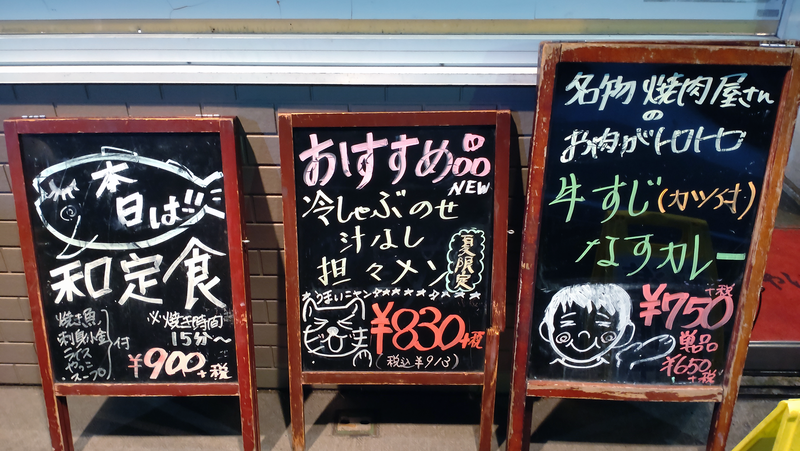 本日は!!
和定食
焼き魚
刺身小金
ライス
やっこ
スープ
付
※焼き時間
15分〜
¥900+税
おすすめ品
NEW
冷しゃぶのせ
汁なし
担々メン
夏限定
うまいニャン
¥830+税
(税込¥913)
名物 焼肉屋さん
の
お肉がトロトロ
牛すじ(カツ付)
なすカレー
¥750+税
単品
¥650+税